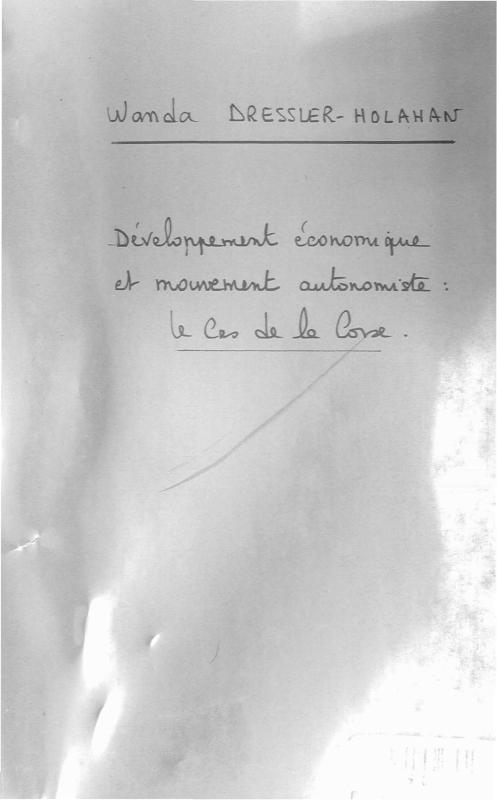 Wanda DRESSLER-HOLAHAN
Développement économique
et mouvement autonomiste :
le Cas de la Corse.